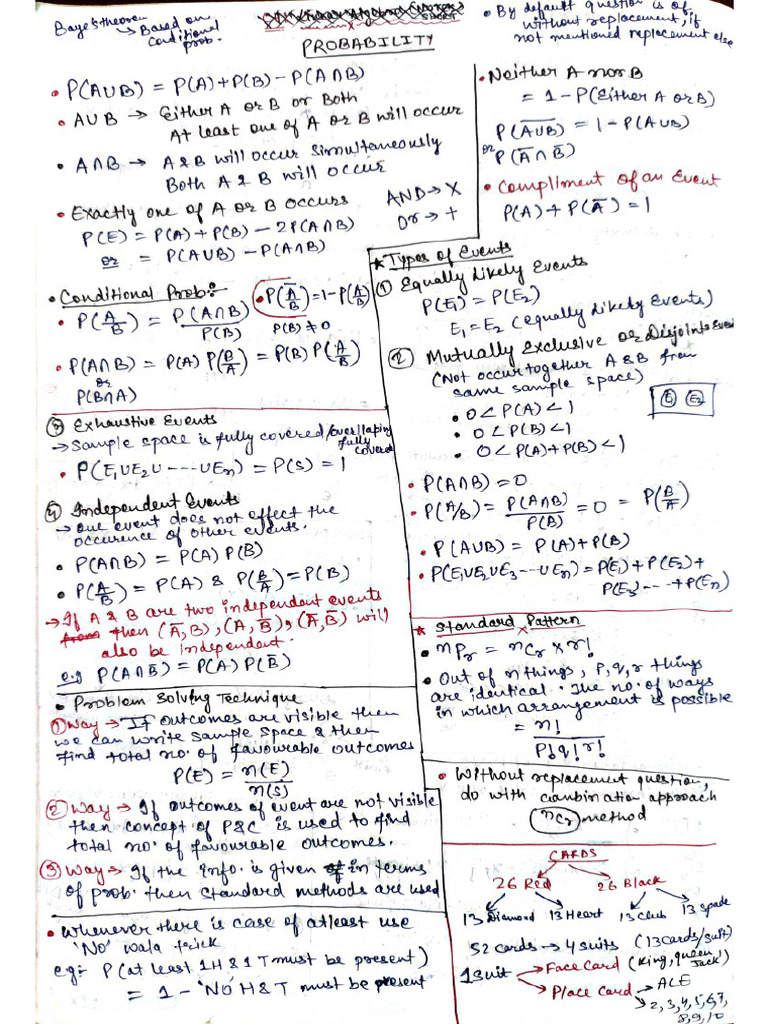 Baye's theorem
→ Based on
conditional
prob.
SHORT
PROBABILITY
• By default question is of
without replacement, if
not mentioned replacement else
• P(A∪B) = P(A)+P(B) - P(A∩B)
• A∪B → Either A or B or Both
At least one of A or B will occur
• A∩B → A & B will occur simultaneously
Both A & B will occur
AND → X
Or → +
• Exactly one of A or B occurs
P(E) = P(A) + P(B) - 2P(A∩B)
or = P(A∪B) - P(A∩B)
• Neither A nor B
= 1 - P(Either A or B)
P(A̅∪̅B̅) = 1 - P(A∪B)
or P(A̅∩B̅)
• Compliment of an Event
P(A) + P(A̅) = 1
• Conditional Prob:
• P(A/B) = P(A∩B)/P(B)
• P(A̅/B) = 1 - P(A/B)
P(B) ≠ 0
• P(A∩B) = P(A) P(B/A) = P(B) P(A/B)
or
P(B∩A)
★ Types of Events
① Equally Likely Events
P(E₁) = P(E₂)
E₁ = E₂ (equally likely Events)
② Mutually Exclusive or Disjoint Event
(Not occur together A & B from
same sample space)
E₁ E₂
• 0 < P(A) < 1
• 0 < P(B) < 1
• 0 < P(A) + P(B) < 1
• P(A∩B) = 0
• P(A/B) = P(A∩B)/P(B) = 0 = P(B/A)
• P(A∪B) = P(A) + P(B)
• P(E₁∪E₂∪E₃ --- ∪Eₙ) = P(E₁) + P(E₂) +
P(E₃) --- + P(Eₙ)
③ Exhaustive Events
→ Sample space is fully covered/overlaping
fully
covered
• P(E₁∪E₂∪ ---- ∪Eₙ) = P(S) = 1
④ Independent Events
→ One event does not effect the
occurence of other events.
• P(A∩B) = P(A) P(B)
• P(A/B) = P(A) & P(B/A) = P(B)
→ If A & B are two independent events
then (A̅, B), (A, B̅), (A̅, B̅) will
also be independent.
e.g P(A∩B̅) = P(A) P(B̅)
★ Standard Pattern
• nPr = nCr × r!
• Out of n things, p, q, r things
are identical. The no. of ways
in which arrangement is possible
= n!/p! q! r!
• Without replacement question,
do with combination approach
(nCr) method
• Problem Solving Technique
① Way → If outcomes are visible then
we can write sample space & then
find total no. of favourable outcomes
P(E) = n(E)/n(S)
② Way → If outcomes of event are not visible
then concept of P&C is used to find
total no. of favourable outcomes.
③ Way → If the info. is given in terms
of prob. then standard methods are used
• Whenever there is case of atleast use
'No' wala trick
eg:- P(at least 1H & 1T must be present)
= 1 - 'NO' H & T must be present
CARDS
26 Red 26 Black
13 Diamond 13 Heart 13 Club 13 Spade
52 cards → 4 suits (13 cards/suit)
1 suit → Face Card (King, queen
Jack)
→ Place Card → ACE
→ 2, 3, 4, 5, 6, 7,
8, 9, 10